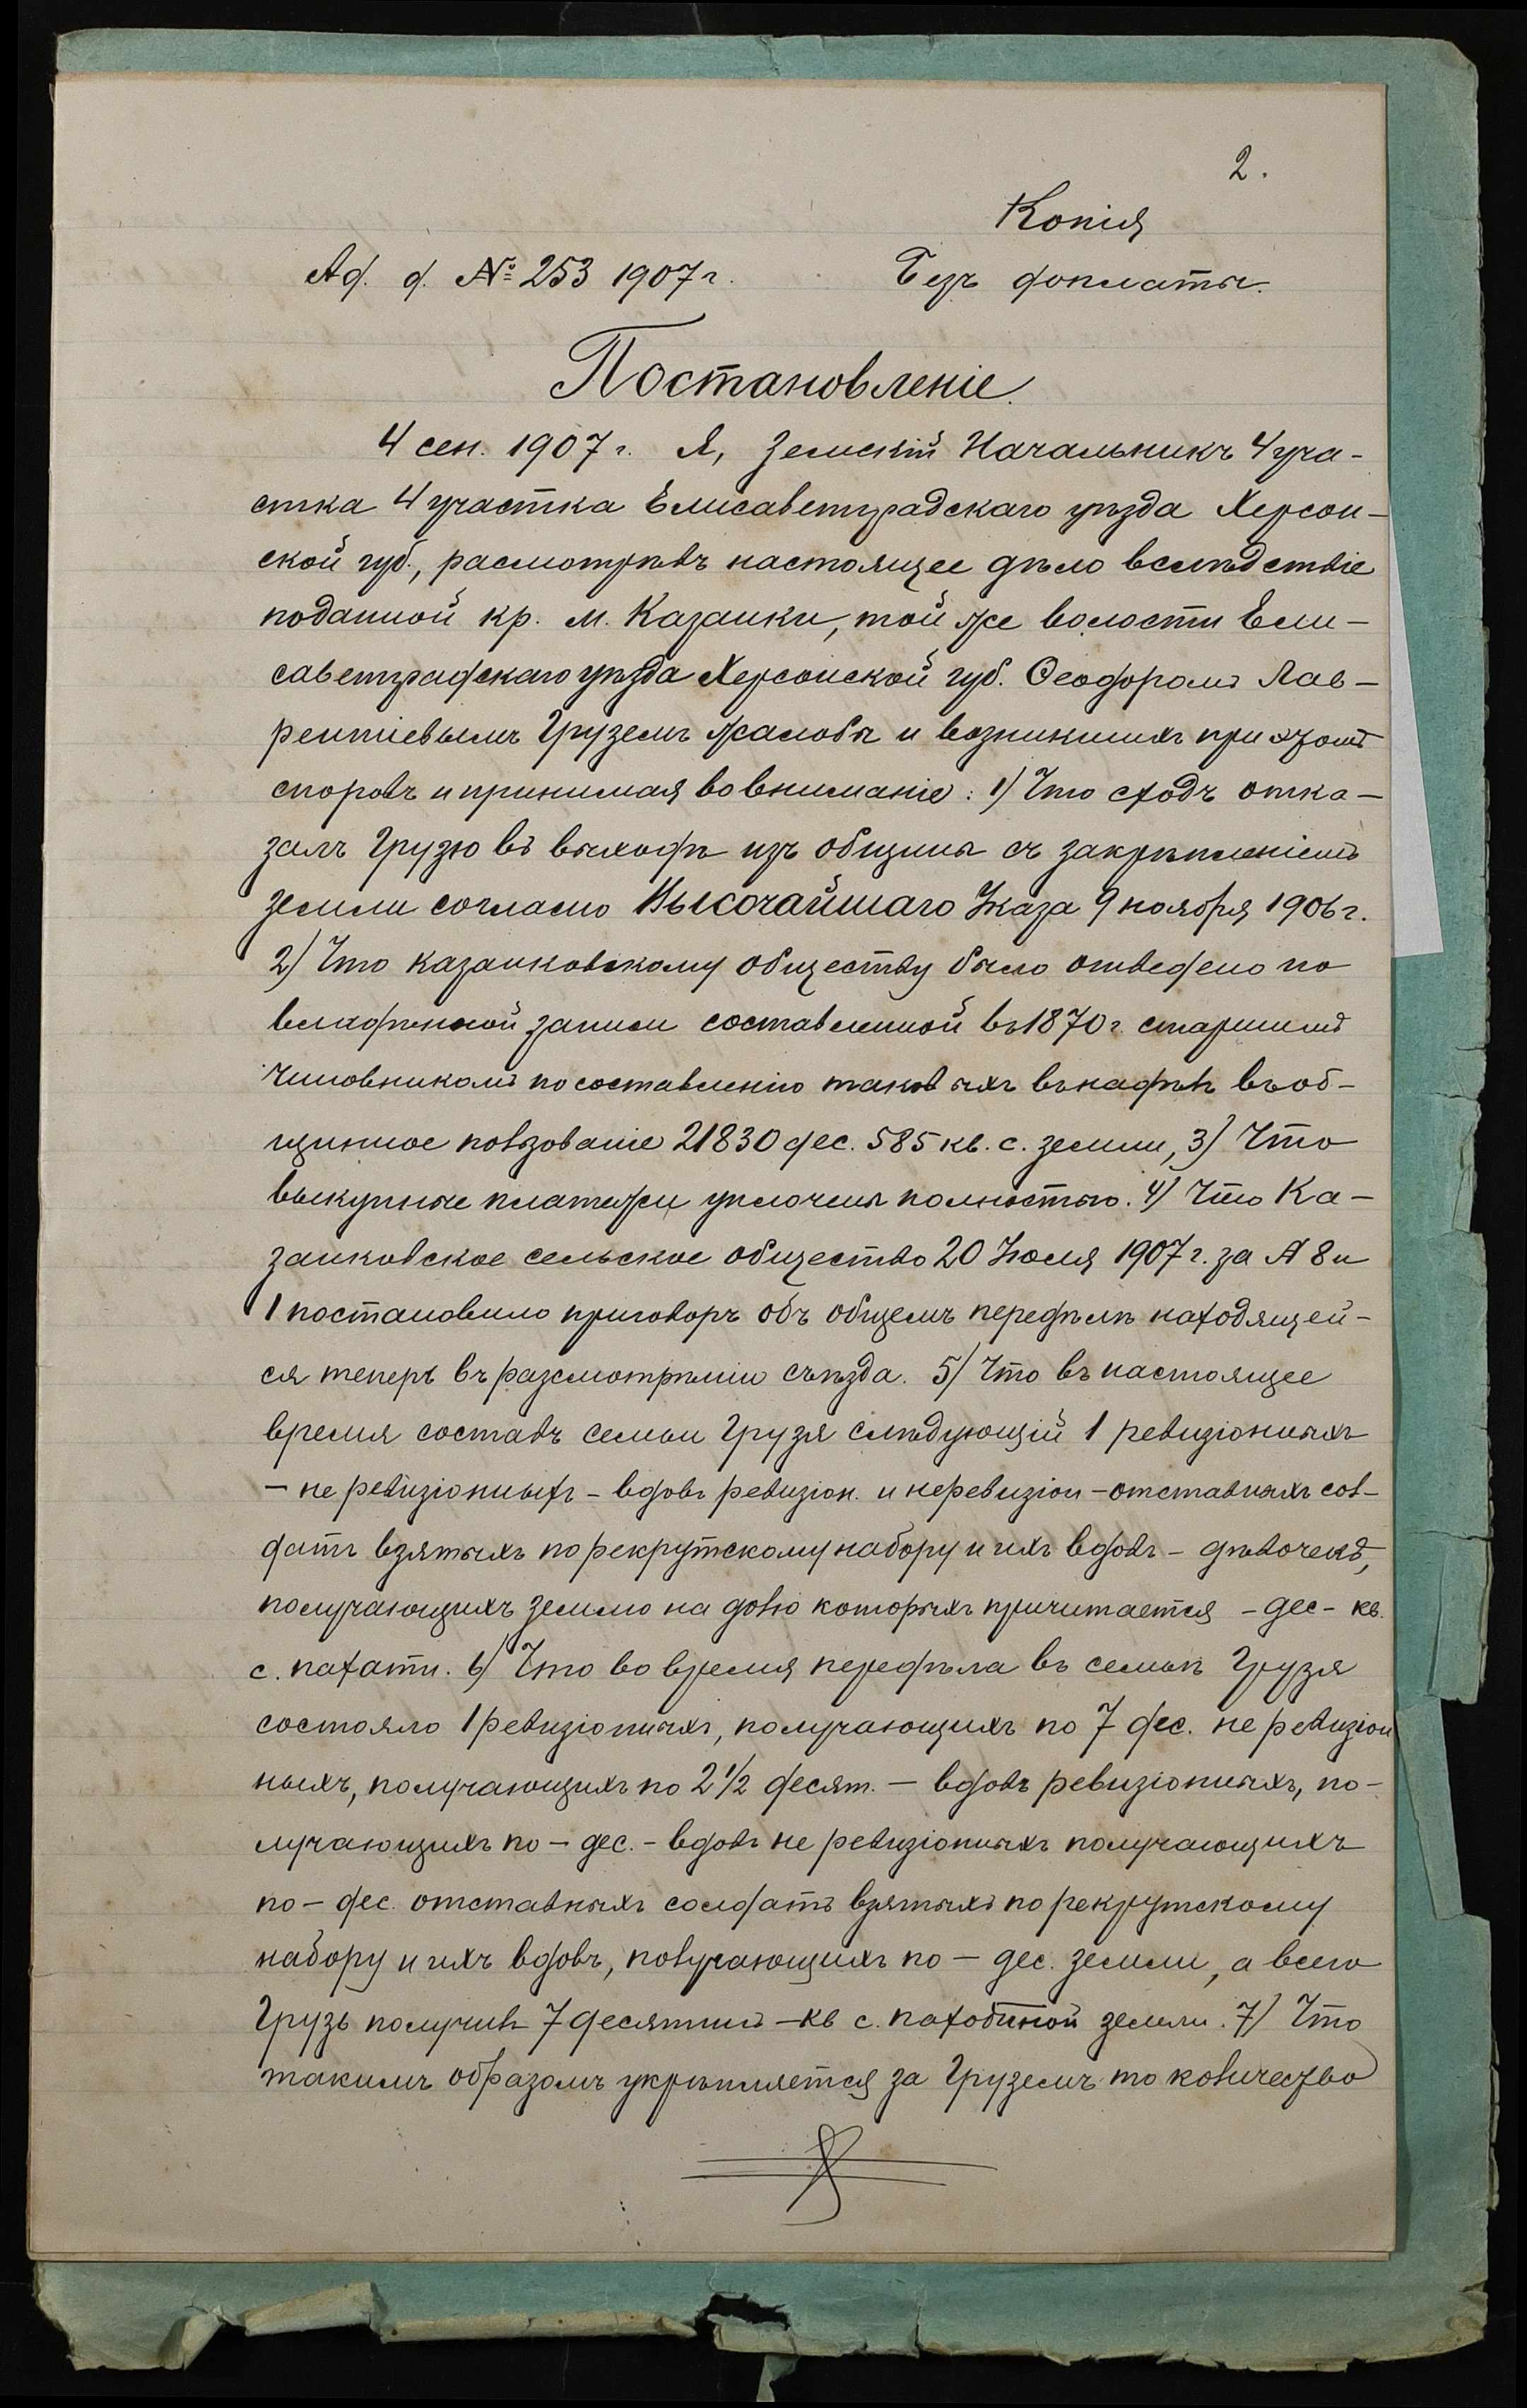 2.
Копія
Ад. д. № 253 1907 г.
Безъ доплаты.
Постановленіе.
4 сен. 1907 г. Я, Земскій Начальникъ 4 уча-
стка 4 участка Елисаветградскаго уѣзда Херсон-
ской губ., расмотрѣвъ настоящее дѣло вслѣдствіе
поданной кр. м. Казанки, той же волости Ели-
саветградскаго уѣзда Херсонской губ. Ѳеодоромъ Лав-
рентіевымъ Груземъ жалобы и возникшихъ при этомъ
споровъ и принимая во вниманіе: 1) Что сходъ отка-
залъ Грузю въ выходѣ изъ общины съ закрѣпленіемъ
земли согласно Высочайшаго Указа 9 ноября 1906 г.
2) Что казанковскому обществу было отведено по
владѣнной записи составленной въ 1870 г. старшимъ
чиновникомъ по составленію таковыхъ въ надѣлъ въ об-
щинное пользованіе 21830 дес. 585 кв. с. земли, 3) Что
выкупные платежи уплочены полностью. 4) Что Ка-
занковское сельское общество 20 Июля 1907 г. за № 8 и
1 постановило приговоръ объ общемъ передѣлѣ находящей-
ся теперь въ разсмотрѣніи съѣзда. 5) Что въ настоящее
время составъ семьи Грузя слѣдующій 1 ревизіонныхъ
— не ревизіонныхъ — вдовъ ревизіон. и неревизіон — отставныхъ сол-
датъ взятыхъ по рекрутскому набору и ихъ вдовъ — дѣвочекъ,
получающихъ землю на долю которыхъ причитается — дес — кв.
с. пахати. 6) Что во время передѣла въ семьѣ Грузя
состояло 1 ревизіонныхъ, получающихъ по 7 дес. не ревизіон
ныхъ, получающихъ по 2 1/2 десят. — вдовъ ревизіонныхъ, по-
лучающихъ по — дес. — вдовъ не ревизіонныхъ получающихъ
по — дес. отставныхъ солдатъ взятыхъ по рекрутскому
набору и ихъ вдовъ, получающихъ по — дес. земли, а всего
Грузь получилъ 7 десятинъ — кв с. пахотной земли. 7) Что
такимъ образомъ укрѣпляется за Груземъ то количество